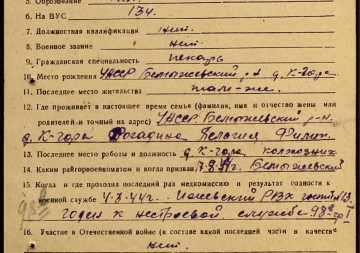 5. Образование
6. На ВУС 134.
7. Должностная квалификация нет.
8. Военное звание нет
9. Гражданская специальность пекарь
10. Место рождения УНССР р-н д. К-гора
Последнее место жительства там-же.
12. Где проживает в настоящее время семья (фамилия, имя и отчество жены или
родителей и точный их адрес) УНССР р-н.
д. К-гора Рогадина Пелагея Филип.
13. Последнее место работы и должность д. К-гора колхозник
14. Каким райгорвоенкоматом и когда призван
15. Когда и где проходил последний раз медкомиссию и результат годности к
военной службе 4.3.44г. РВК
годен к нестроевой службе
16. Участие в Отечественной войне (в составе какой последней части в качестве
нет.